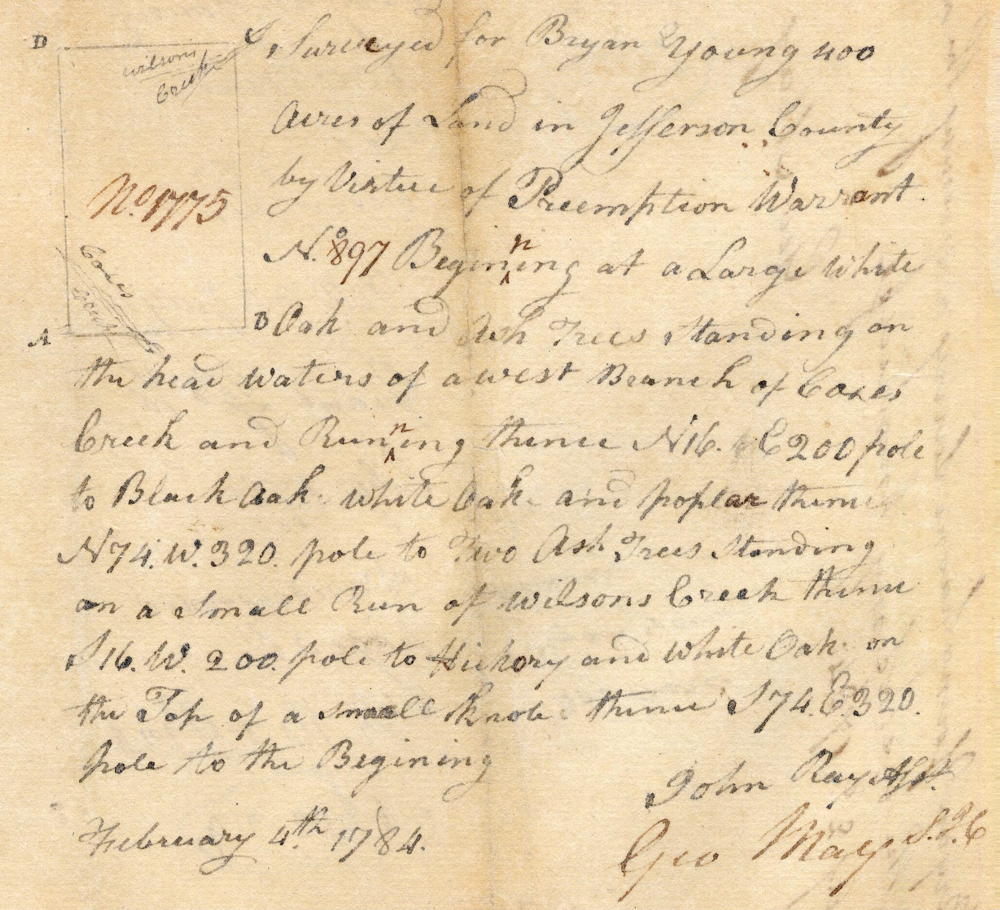 D
C
wilsons
Creek
No. 1775
Coxes
Creek
A
B
Surveyed for Bryan Young 400
Acres of Land in Jefferson County
by Virtue of Preemption Warrant.
No. 897 Beginning at a Large white
Oak and Ash Trees standing on
the head waters of a west Branch of Coxes
Creek and Running thence N16. E 200 pole
to Black Oak white Oak and poplar thence
N74. W. 320. pole to Two Ash Trees Standing
on a Small Run of wilsons Creek thence
S16. W. 200. pole to Hickory and white Oak on
the Top of a small Knob thence S74. E. 320.
pole to the Begining
John Ray Asst.
February 4th 1784.
Geo May S.J.C